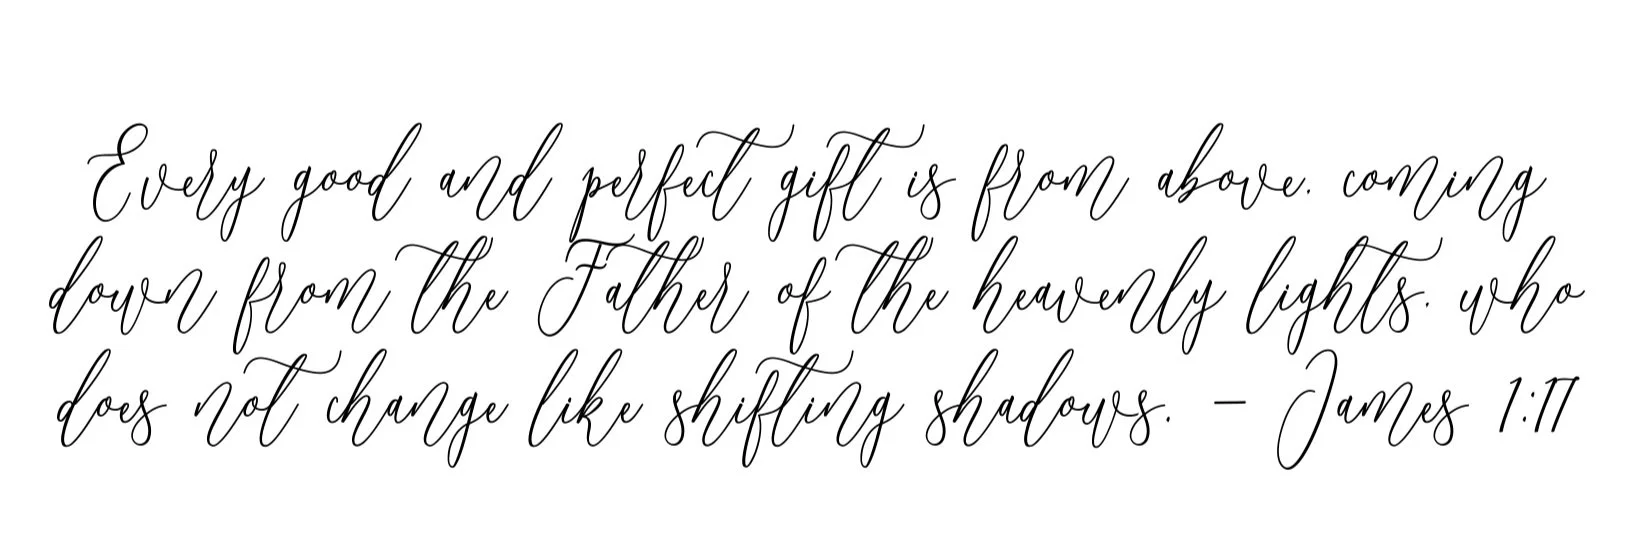 Every good and perfect gift is from above, coming
down from the Father of the heavenly lights, who
does not change like shifting shadows. – James 1:17